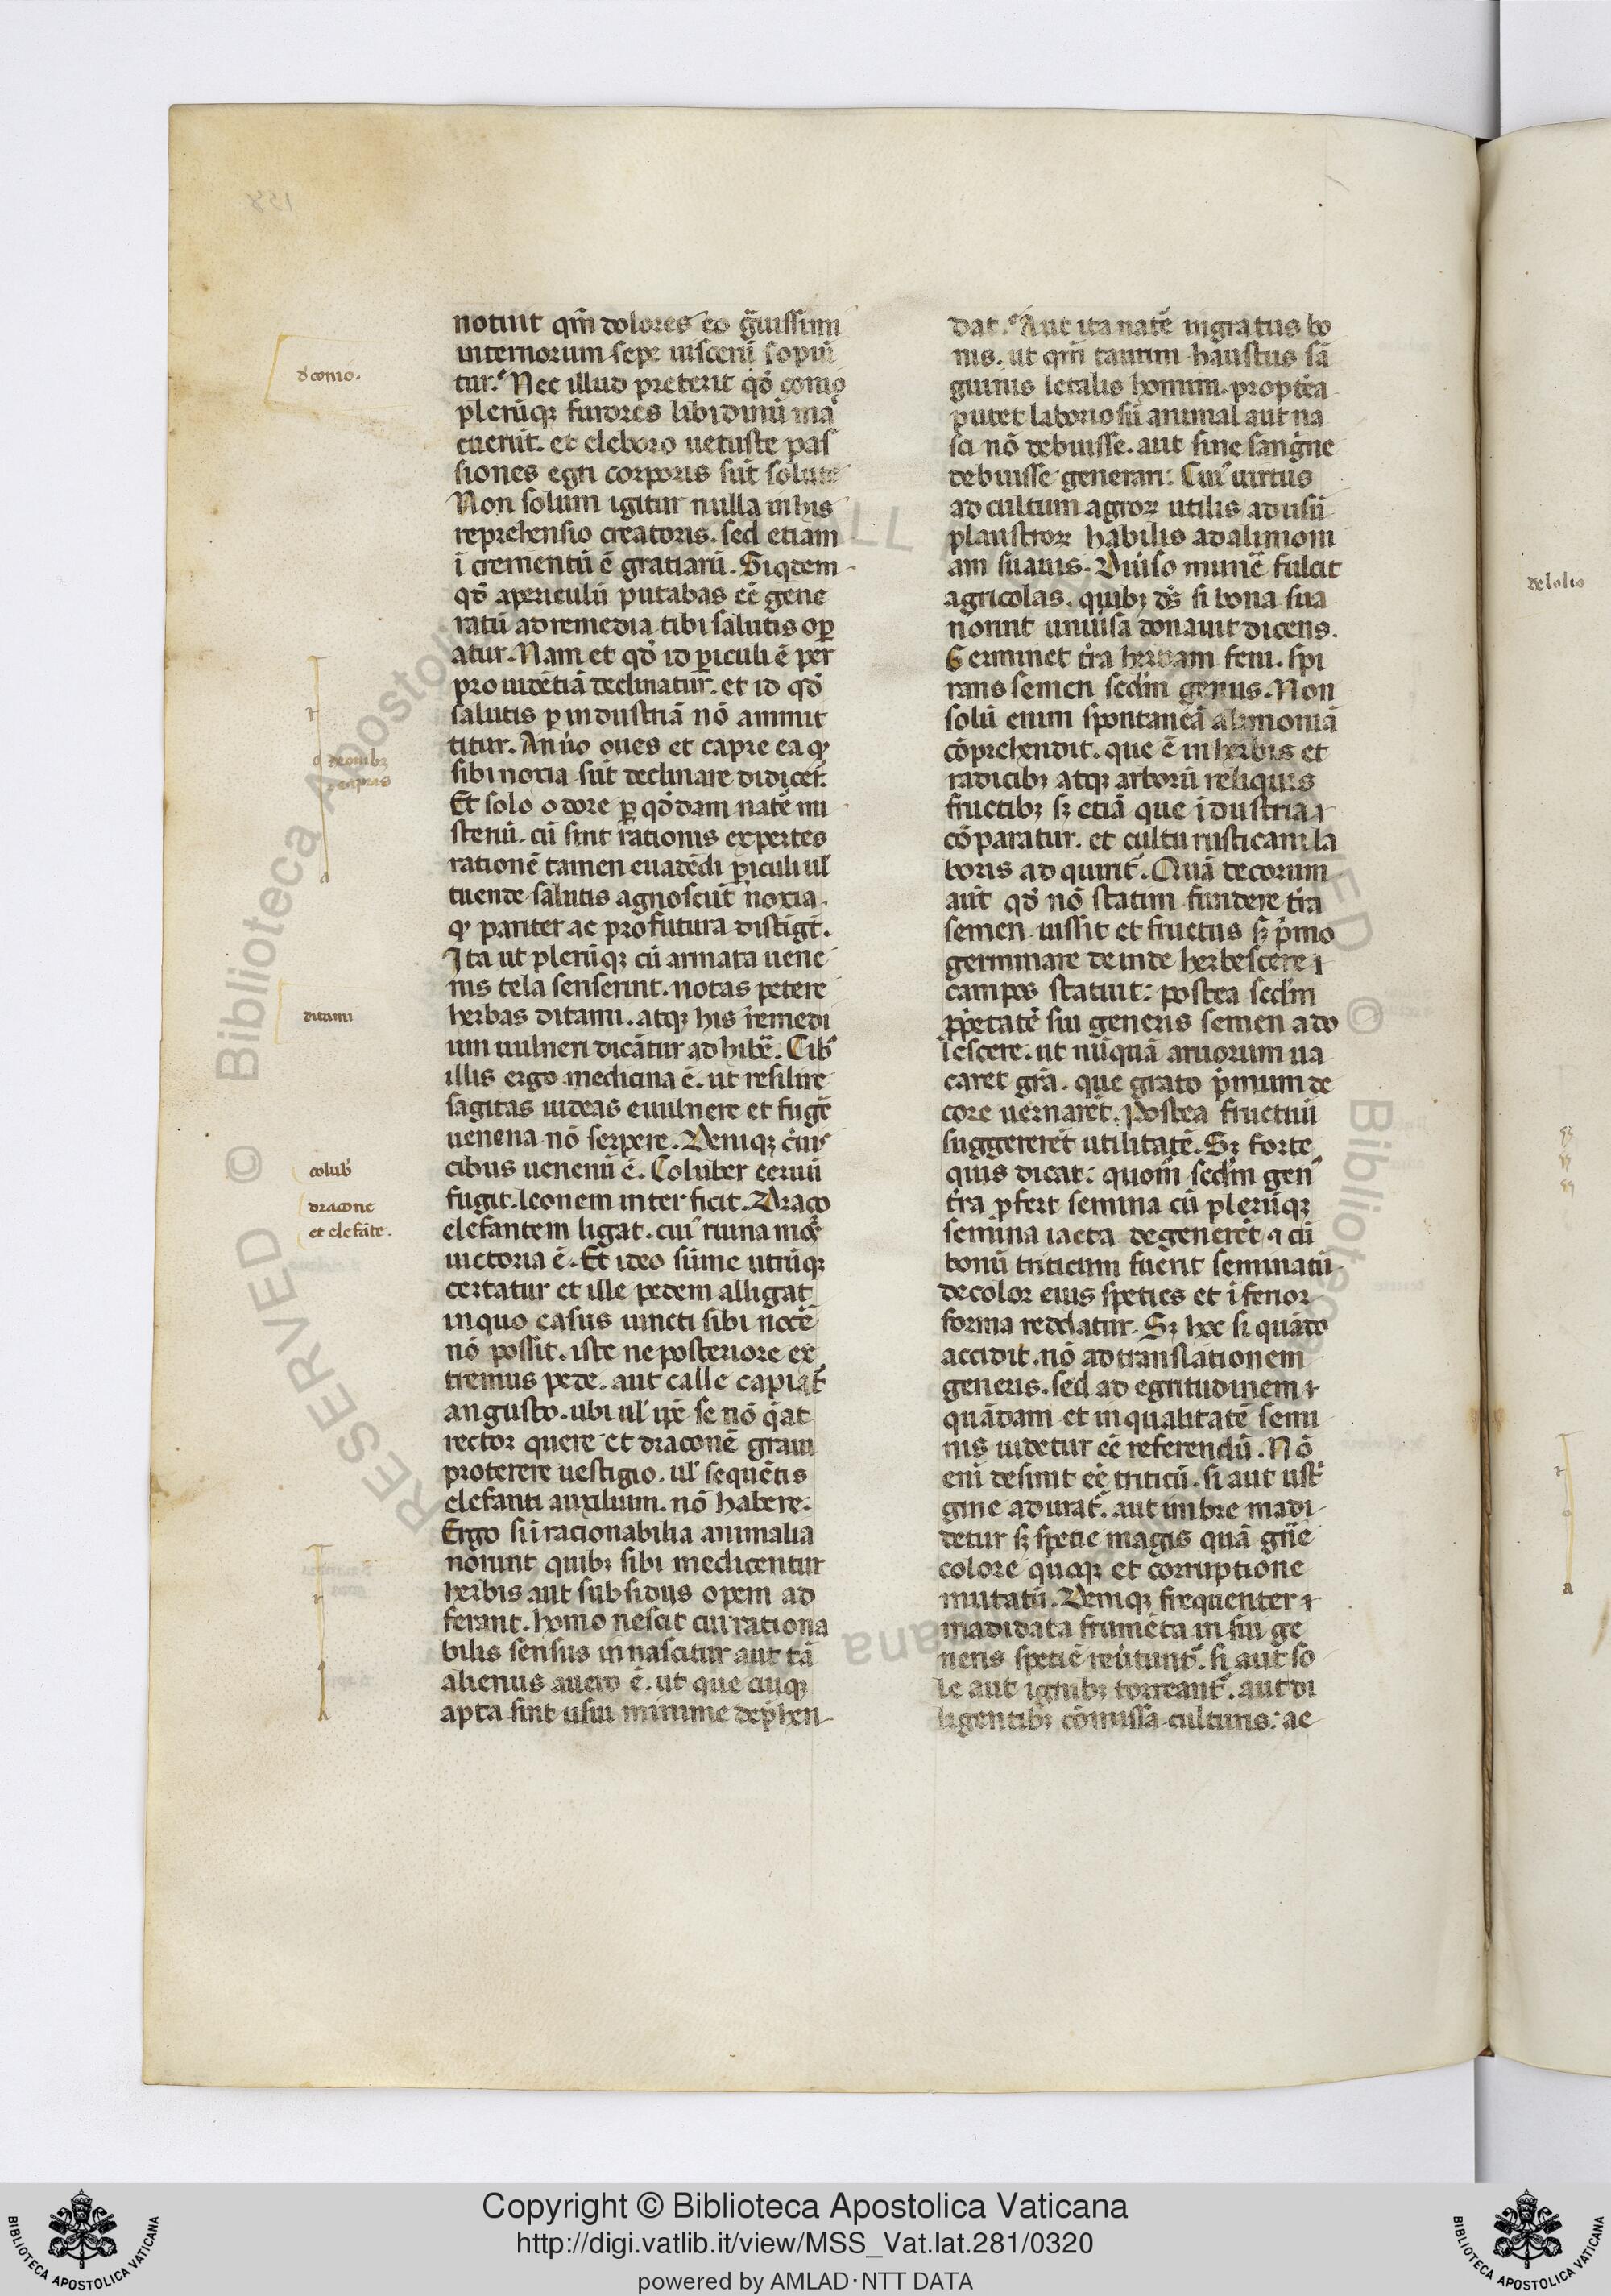 notuit qm̄ dolores eo g̃uissimi
internorum sepe uiscerū sopiū
tur. Nec illud preterit qd̓ como
plerūq; furores libidinū ma
cuerūt. et eleboro uetuste pas
siones egri corporis sūt solute
Non solum igitur nulla in his
reprehensio creatoris. sed etiam
ī crementū ē gratiarū. Siqdem
qd̓ apericulū putabas eē gene
ratū ad remedia tibi salutis oꝑ
atur. Nam et qd̓ id ꝑiculi ē per
prouidētiā declinatur. et id qd̓
salutis ꝑ industriā nō ammit
titur. An ůo oues et capre ea q̓
sibi noxia sūt declinare didiceř.
Et solo odore ꝑ qd̓dam natē mi
sterū. cū sint rationis expertes
rationē tamen euadēdi ꝑiculi ul̓
tuende salutis agnoscūt noxia
q̓ pariter ac profutura distīgt̄.
Ita ut plerūq; cū armata uene
nis tela senserint. notas petere
herbas ditami. atq; his remedi
um uulneri dicātur adhibē. Cib᾽
illis ergo medicina ē. ut resilire
sagitas uideas euulnere et fugē
uenena nō serpere. Deniq; c̓uis
cibus uenenū ē. Coluber ceruū
fugit. leonem interficit. Draco
elefantem ligat. cui᾽ ruina mo
uictoria ē. Et ideo sūme utrīq;
certatur et ille pedem alligat
in quo casus uincti sibi nocē
nō possit. iste ne posteriore ex
tremus pede. aut calle capiat᾽
angusto. ubi ul̓ ip̄e se nō q̓at
rector quere et draconē graui
proterere uestigio. ul̓ sequētis
elefanti auxilium. nō habere.
Ergo si īracionabilia animalia
norunt quib; sibi medicentur
herbis aut subsidiis opem ad
ferant. homo nescit cui rationa
bilis sensus innascitur aut tā
alienus auero ē. ut que cuiq;
apta sint usui minime dep̓hen
dat. Aut ita natē ingratus bo
nis. ut qm̄ taurini haustus sā
guinis letalis homini. proptea
putet laboriosū animal aut na
sci nō debuisse. aut sine sangne
debuisse generari: Cui᾽ uirtus
ad cultum agroꝝ utilis ad usū
plaustroꝝ habilis ad alimoni
am suauis. Diuiso munē fulcit
agricolas. quib; d̄s si bona sua
norint uniůsa donauit dicens.
Germinet t̓ra herbam feni. spi
rans semen secd̓m genus. Non
solū enim spontaneā alimoniā
cōprehendit. que ē in herbis et
radicib; atq; arborū reliquis
fructib; s; etiā que īdustria
cōparatur. et cultu rusticani la
boris ad quirit᾽. Quā decorum
aūt qd̓ nō statim fundere t̓ra
semen iussit et fructus s; p̓mo
germinare deinde herbescere
campos statuit: postea secd̓m
ꝓp̓etatē sui generis semen ado
lescere. ut nūquā aruorum ua
caret gr̄a. que grato p̓mum de
core uernaret. Postea fructuū
suggereret utilitatē. S; forte
quis dicat: quom̄ secd̓m gen᾽
t̓ra ꝓfert semina cū plerūq;
semina iacta degeneret ⁊ cū
bonū triticum fuerit seminatū
decolor eius speties et īferior
forma reddatur. S; hoc si quādo
accidit. nō ad translationem
generis. sed ad egritudinem
quādam et inqualitatē semi
nis uidetur eē referendū. Nō
eni desinit eē triticū. si aut ust᾽
gine adurat᾽. aut imbre madi
detur s; spetie magis quā gn̄e
colore quoq; et corruptione
mutatū. Deniq; frequenter
madidata frumēta in sui ge
neris spetiē reůtunt᾽. si aut so
le aut ignib; torreant᾽. aut di
ligentib; cōmissa culturis: ac
d̓ conio.
d̓ ouib;
⁊ capris
ditami
colub᾽
dracone
et elefāte.
de lolio
RESERVED © Biblioteca Apostolica Vaticana
ALL
Copyright © Biblioteca Apostolica Vaticana
http://digi.vatlib.it/view/MSS_Vat.lat.281/0320
powered by AMLAD·NTT DATA
BIBLIOTECA APOSTOLICA VATICANA
BIBLIOTECA APOSTOLICA VATICANA